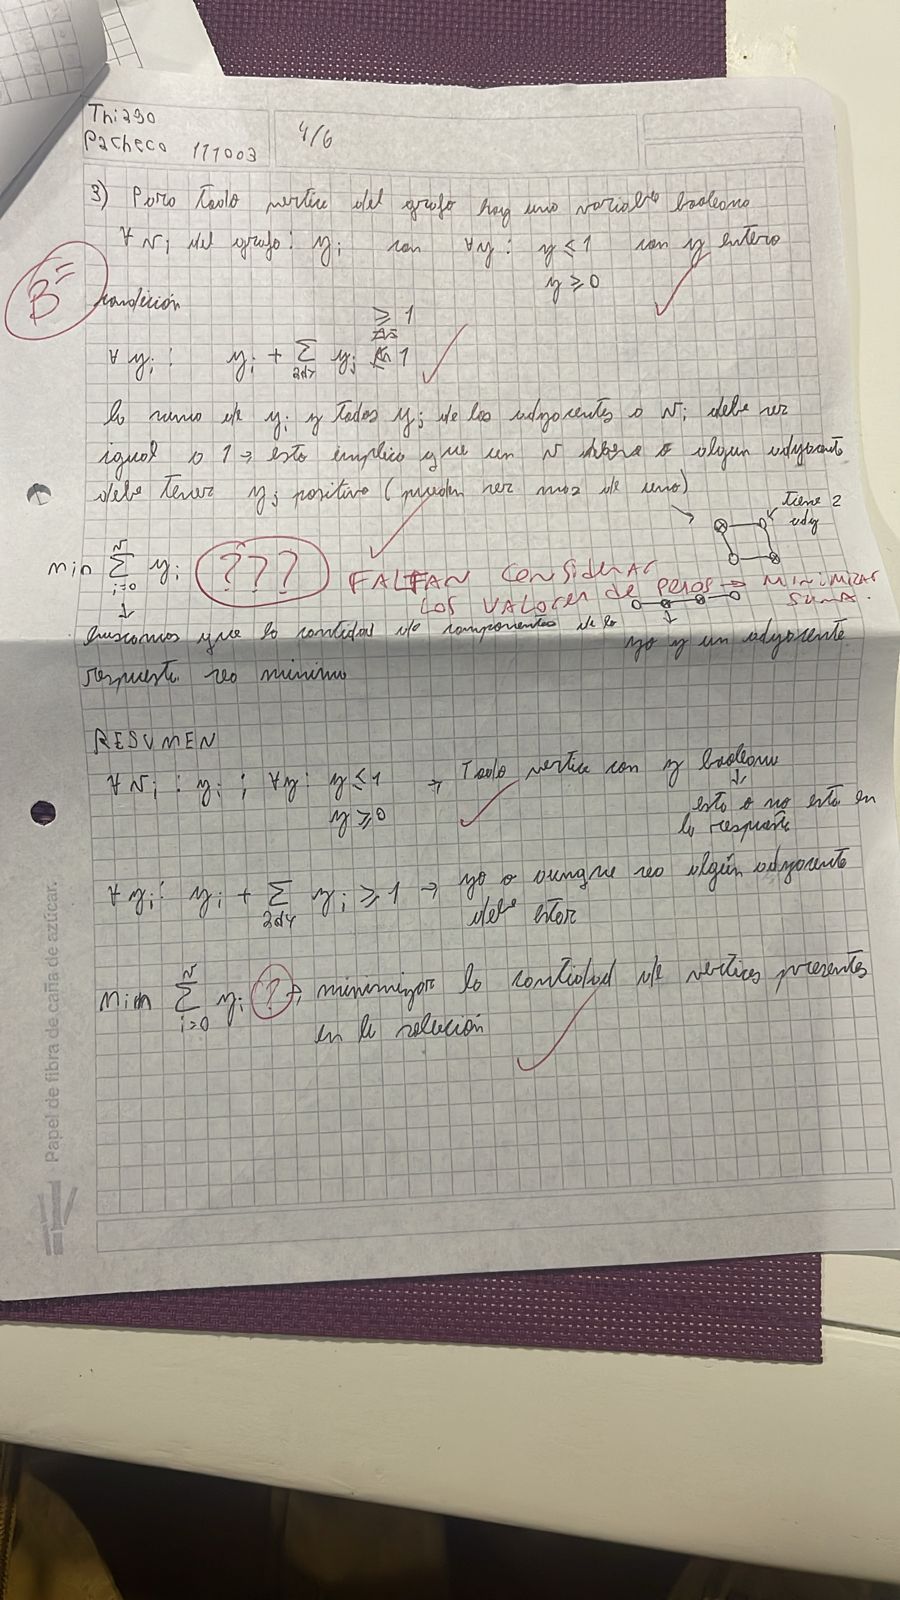 Thiago
Pacheco 111003
4/6
3) Para todo vertice del grafo hay una variable booleana
∀ Vi del grafo: yi con ∀y: y ≤ 1 con y entero
y ≥ 0
B-
condición
≥ 1
∀ yi: yi + Σ yj 1
ady
la suma de yi y todos yj de los adyacentes a Vi debe ser
igual a 1 → esto implica que un V o algun adyacente
debe tener yj positivo (pueden ser mas de uno)
tiene 2
ady
min Σ yi ???
V
i=0
FALTAN CONSIDERAR
LOS VALORES de pesos → MINIMIZAR
SUMA.
buscamos que la cantidad de componentes de la
yo y un adyacente
respuesta sea minimo
RESUMEN
∀ Vi: yi; ∀y: y ≤ 1 → Todo vertice con y booleano
y ≥ 0
esta o no esta en
la respuesta
∀ yi: yi + Σ yj ≥ 1 → yo o aunque sea algún adyacente
ady
debe estar
V
Min Σ yi ? → minimizar la cantidad de vertices presentes
i=0
en la solución
Papel de fibra de caña de azúcar.